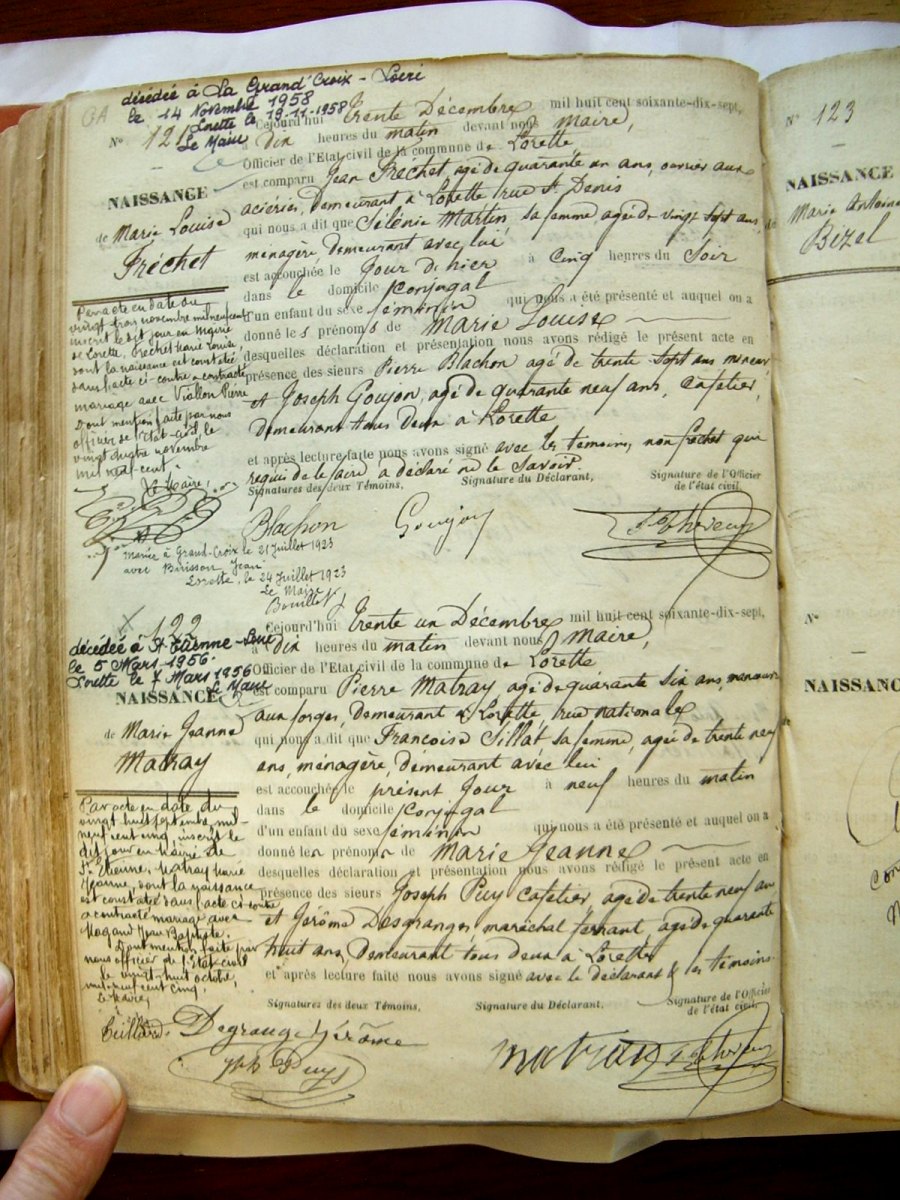 décédée à La Grand'Croix - Loire
le 14 Novembre 1958
Lorette le 19-11-1958
Le Maire
N° 121
NAISSANCE
de Marie Louise
Fréchet
Cejourd'hui trente Décembre mil huit cent soixante-dix-sept,
à dix heures du matin devant nous maire,
Officier de l'Etat civil de la commune de Lorette
est comparu Jean Fréchet, agé de quarante un ans, ouvrier aux
aciéries, demeurant à Lorette rue St Denis
qui nous a dit que Sélénie Martin, sa femme agée de vingt sept ans,
ménagère, demeurant avec lui
est accouchée le Jour d'hier à cinq heures du Soir
dans le domicile conjugal
d'un enfant du sexe féminin qui nous a été présenté et auquel on a
donné les prénoms de Marie Louise
desquelles déclaration et présentation nous avons rédigé le présent acte en
présence des sieurs Pierre Blachon agé de trente sept ans mineur
et Joseph Goujon, agé de quarante neuf ans, cafetier,
demeurant tous deux à Lorette
et après lecture faite nous avons signé avec les témoins, non fréchet qui
requis de le faire a déclaré ne le Savoir.
Signatures des deux Témoins, Signature du Déclarant, Signature de l'Officier
de l'état civil,
Blachon Goujon
Par acte en date du
vingt trois novembre mil neuf cent
inscrit le dit jour en Mairie
de Lorette, Fréchet Marie Louise
dont la naissance est constatée
dans l'acte ci-contre a contracté
mariage avec Viallon Pierre
Dont mention faite par nous
officier de l'Etat-civil, le
vingt novembre
mil neuf cent.
Le Maire,
Mariée à Grand-Croix le 21 Juillet 1923
avec Buisson Jean
Lorette, le 24 Juillet 1923
Le Maire
122
décédée à St Etienne - Loire
le 5 Mars 1956
Lorette le 7 Mars 1956
Le Maire
NAISSANCE
de Marie Jeanne
Matray
Cejourd'hui trente un Décembre mil huit cent soixante-dix-sept,
à dix heures du matin devant nous maire,
Officier de l'Etat civil de la commune de Lorette
est comparu Pierre Matray agé de quarante six ans, manoeuvre
aux forges, demeurant à Lorette, rue nationale
qui nous a dit que Françoise Sillat sa femme, agée de trente neuf
ans, ménagère, demeurant avec lui
est accouchée le présent Jour à neuf heures du matin
dans le domicile conjugal
d'un enfant du sexe féminin qui nous a été présenté et auquel on a
donné les prénoms de Marie Jeanne
desquelles déclaration et présentation nous avons rédigé le présent acte en
présence des sieurs Joseph Puy cafetier, agé de trente neuf ans
et Jérôme Desgranges maréchal ferrant, agé de quarante
huit ans, demeurant tous deux à Lorette
et après lecture faite nous avons signé avec le déclarant & les témoins.
Signatures des deux Témoins, Signature du Déclarant, Signature de l'Officier
de l'état civil,
Degrange Jérôme
Puys
matray
Par acte en date du
vingt huit septembre mil-
neuf cent cinq, inscrit le
dit jour en Mairie de
St Etienne, Matray Marie
Jeanne, dont la naissance
est constatée dans l'acte ci contre
a contracté mariage avec
Magand Jean Baptiste.
Dont mention faite par
nous officier de l'Etat civil
le vingt-huit octobre,
mil-neuf cent cinq.
Le Maire,
N° 123
NAISSANCE
de Marie Antoine
Bizel
N°
NAISSANC